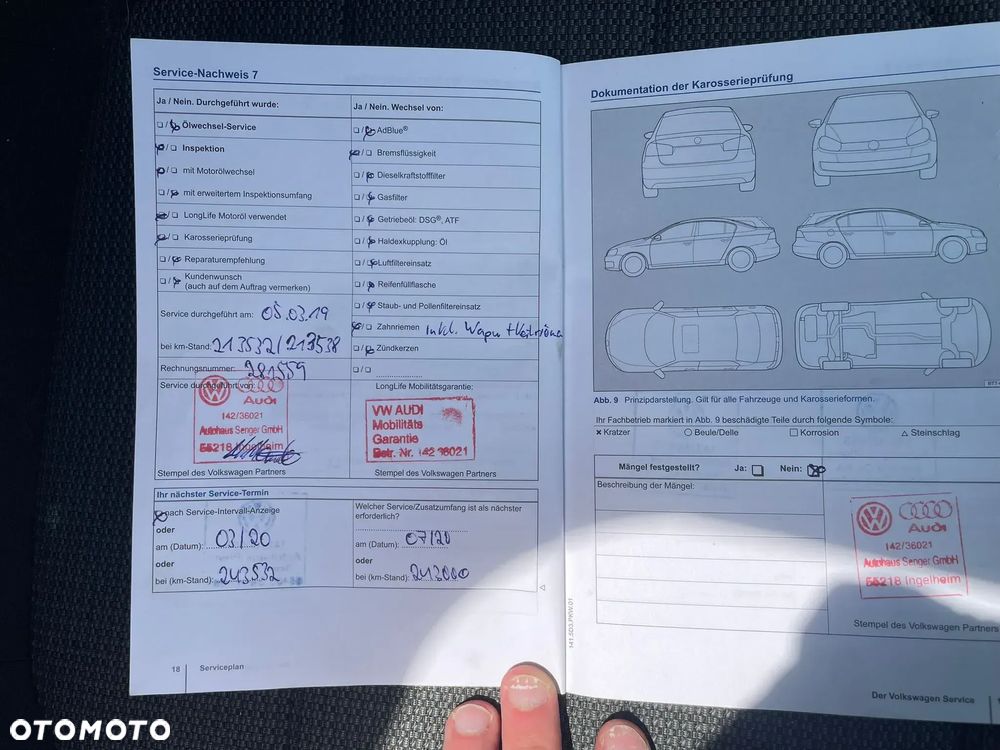 Service-Nachweis 7
Ja / Nein. Durchgeführt wurde:
Ölwechsel-Service
Inspektion
mit Motorölwechsel
mit erweitertem Inspektionsumfang
LongLife Motoröl verwendet
Karosserieprüfung
Reparaturempfehlung
Kundenwunsch
(auch auf dem Auftrag vermerken)
Service durchgeführt am: 05.03.19
bei km-Stand: 213532/213538
Rechnungsnummer: 281559
Service durchgeführt von:
Audi
142/36021
Autohaus Senger GmbH
55218 Ingelheim
Stempel des Volkswagen Partners
Ja / Nein. Wechsel von:
AdBlue®
Bremsflüssigkeit
Dieselkraftstofffilter
Gasfilter
Getriebeöl: DSG®, ATF
Haldexkupplung: Öl
Luftfiltereinsatz
Reifenfüllflasche
Staub- und Pollenfiltereinsatz
Zahnriemen Inkl. Wapu +
Zündkerzen
LongLife Mobilitätsgarantie:
VW AUDI
Mobilitäts
Garantie
Betr. Nr. 142 36021
Stempel des Volkswagen Partners
Ihr nächster Service-Termin
nach Service-Intervall-Anzeige
oder
am (Datum): 03/20
oder
bei (km-Stand): 243532
Welcher Service/Zusatzumfang ist als nächster
erforderlich?
am (Datum): 07/20
oder
bei (km-Stand): 213000
18 Serviceplan
141.5D3.PKW.01
Dokumentation der Karosserieprüfung
Abb. 9 Prinzipdarstellung. Gilt für alle Fahrzeuge und Karosserieformen.
Ihr Fachbetrieb markiert in Abb. 9 beschädigte Teile durch folgende Symbole:
Kratzer Beule/Delle Korrosion Steinschlag
Mängel festgestellt? Ja: Nein:
Beschreibung der Mängel:
Audi
142/36021
Autohaus Senger GmbH
55218 Ingelheim
Stempel des Volkswagen Partners
Der Volkswagen Service
OTOMOTO